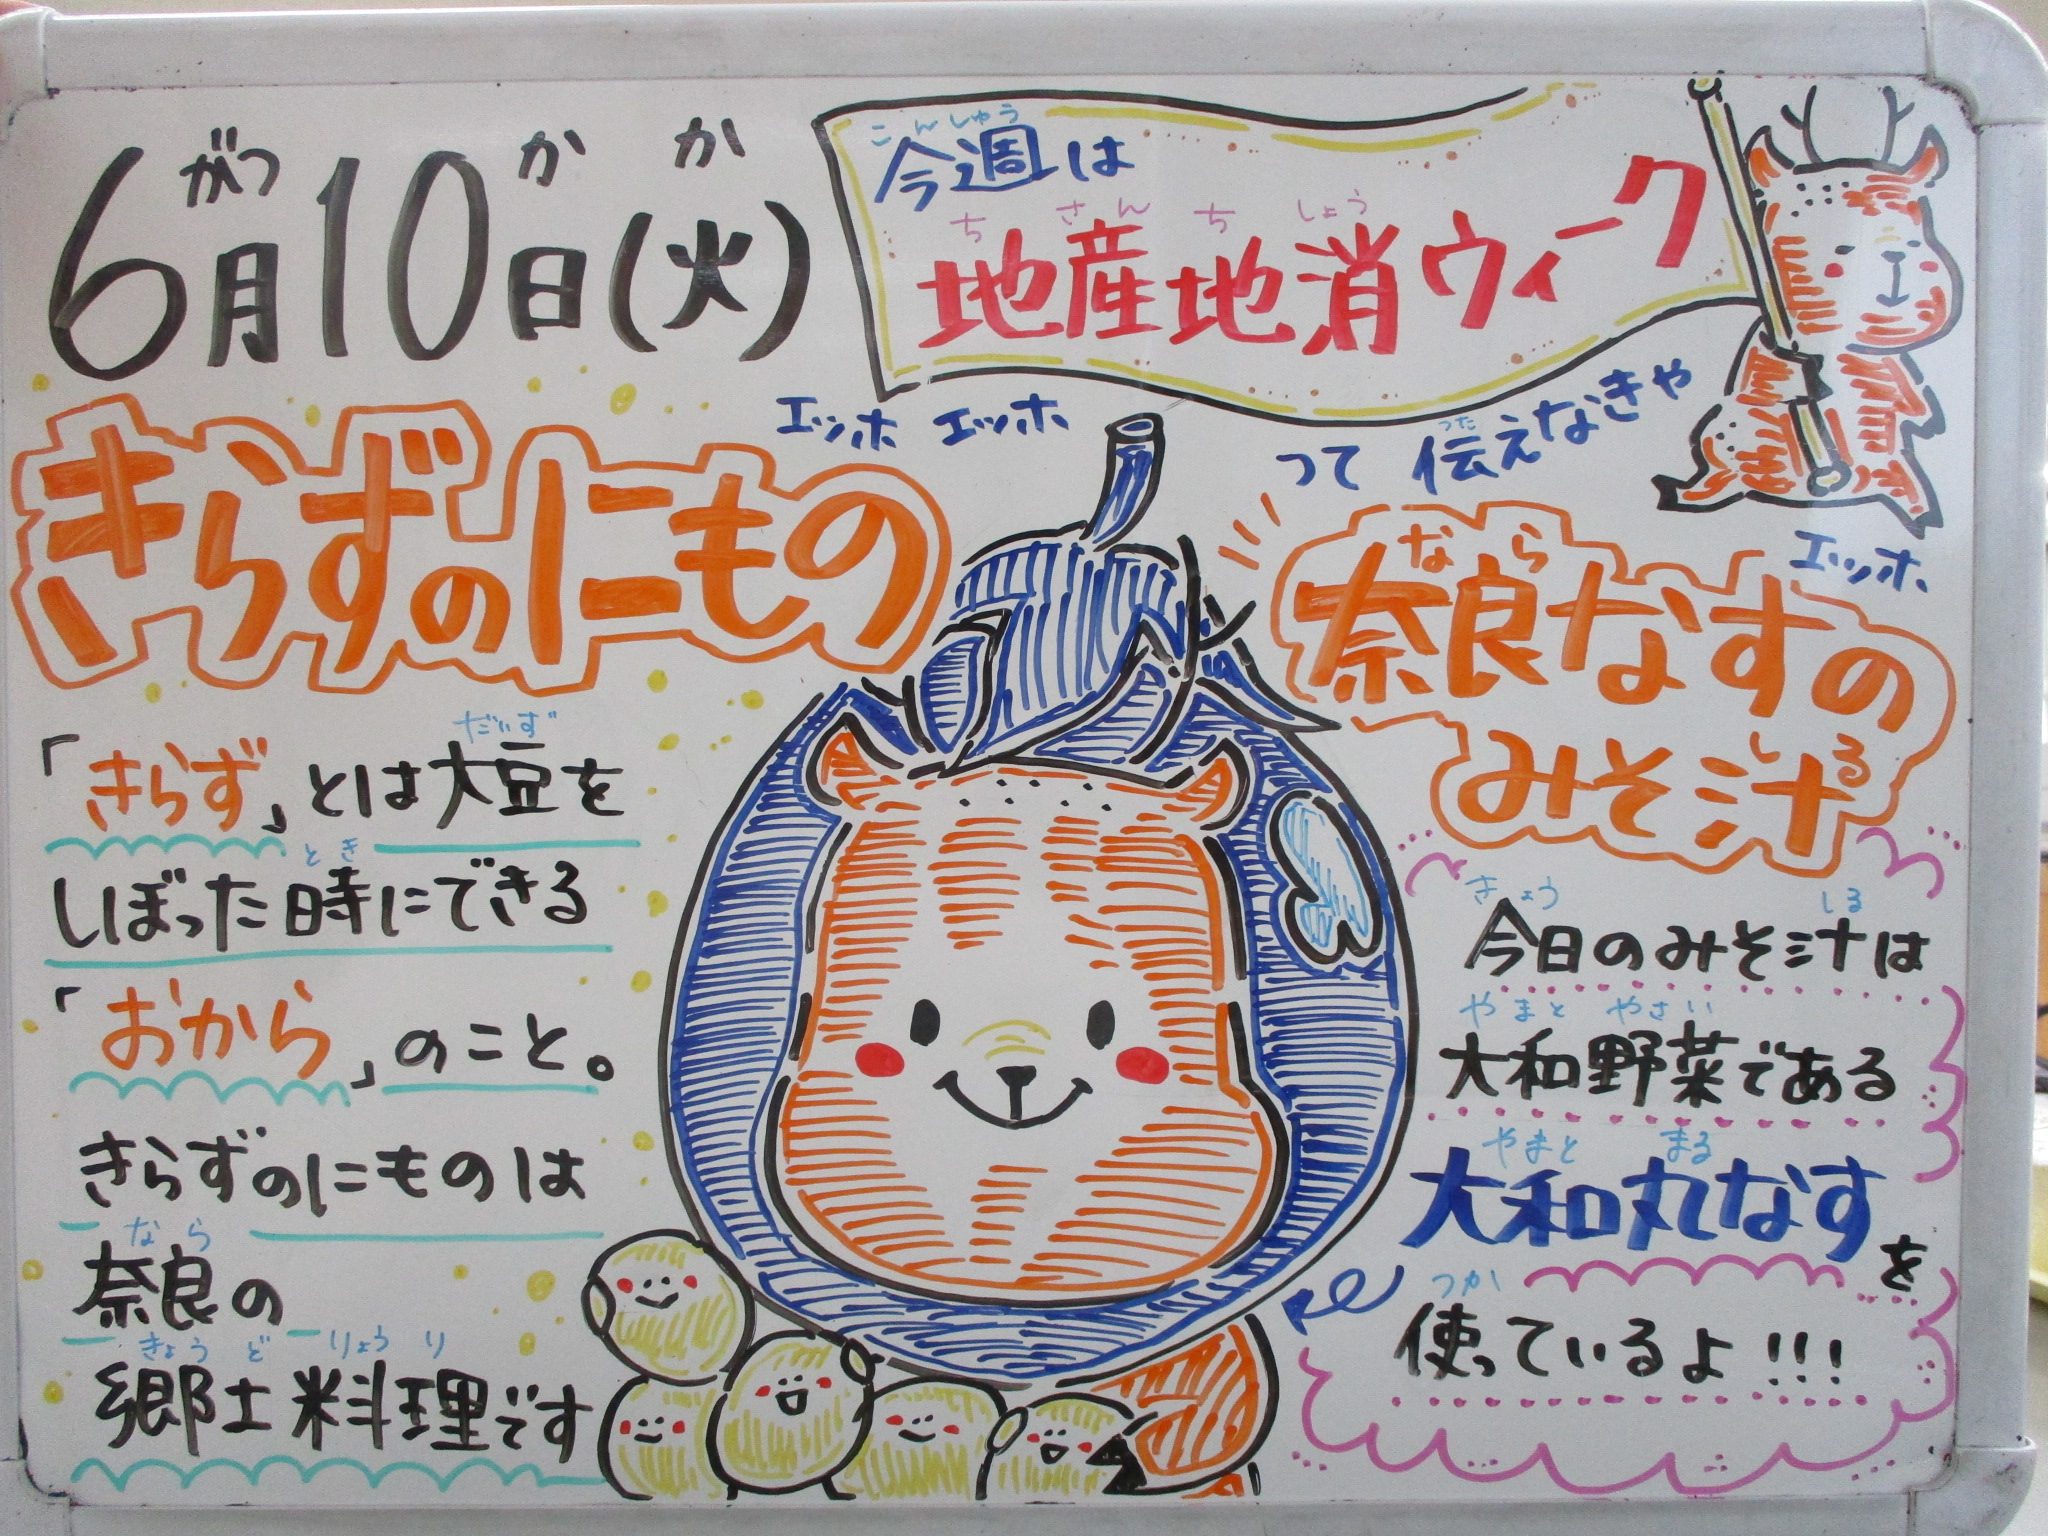 6月10日(火)
がつ か か
今週は
こんしゅう
地産地消ウィーク
ちさんちしょう
エッホ エッホ
って伝えなきゃ
つた
エッホ
きらずのにもの
「きらず」とは大豆を
だいず
しぼった時にできる
とき
「おから」のこと。
きらずのにものは
奈良の
なら
郷土料理です
きょうど りょうり
奈良なすの
なら
みそ汁
しる
今日のみそ汁は
きょう しる
大和野菜である
やまと やさい
大和丸なすを
やまと まる
使っているよ!!!
つか